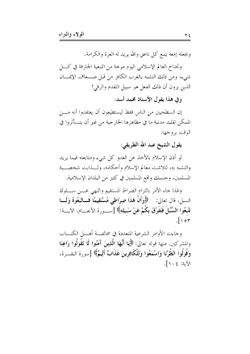 ٣٤
الولاء والبراء
وتجعله إمعة يتبع كل ناعق والله يريد له العزة والكرامة.
وتجتاح العالم الإسلامي اليوم موجة من التبعية الجارفة في كل
شيء، ومن ذلك التشبه بالغرب الكافر من قبل ضعاف الإيمان
الذين يرون أن ذلك الفعل هو سبيل التقدم والرقي!
وفي هذا يقول الأستاذ محمد أسد:
إن السطحيين من الناس فقط ليستطيعون أن يعتقدوا أنه من
الممكن تقليد مدنية ما في مظاهرها الخارجية من غير أن يتأثروا في
الوقت بروحها.
يقول الشيخ عبد الله الطريقي:
لو أذن الإسلام بالأخذ عن العدو كل شيء ومتابعته فيما يريد
والتشبه به؛ لتلاشت معالم الإسلام وأحكامه، ولذابت شخصية
المسلمين، وحسبك واقع المسلمين في كثير من البلدان الإسلامية.
ولهذا جاء الأمر بالتزام الصراط المستقيم والنهي عن سلوك
السبل، قال تعالى: ﴿وَأَنَّ هَذَا صِرَاطِي مُسْتَقِيمًا فَاتَّبِعُوهُ وَلَا
تَتَّبِعُوا السُّبُلَ فَتَفَرَّقَ بِكُمْ عَنْ سَبِيلِهِ﴾ [سورة الأنعام، الآية:
١٥٣].
وجاءت الأوامر الشرعية المتعددة في مخالفة أهل الكتاب
والمشركين، منها قوله تعالى: ﴿يَا أَيُّهَا الَّذِينَ آَمَنُوا لَا تَقُولُوا رَاعِنَا
وَقُولُوا انْظُرْنَا وَاسْمَعُوا وَلِلْكَافِرِينَ عَذَابٌ أَلِيمٌ﴾ [سورة البقرة،
الآية: ١٠٤].